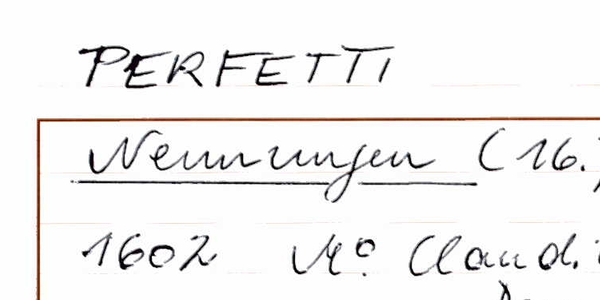 PERFETTI
Nennungen (16.
1602 Mº Claudi